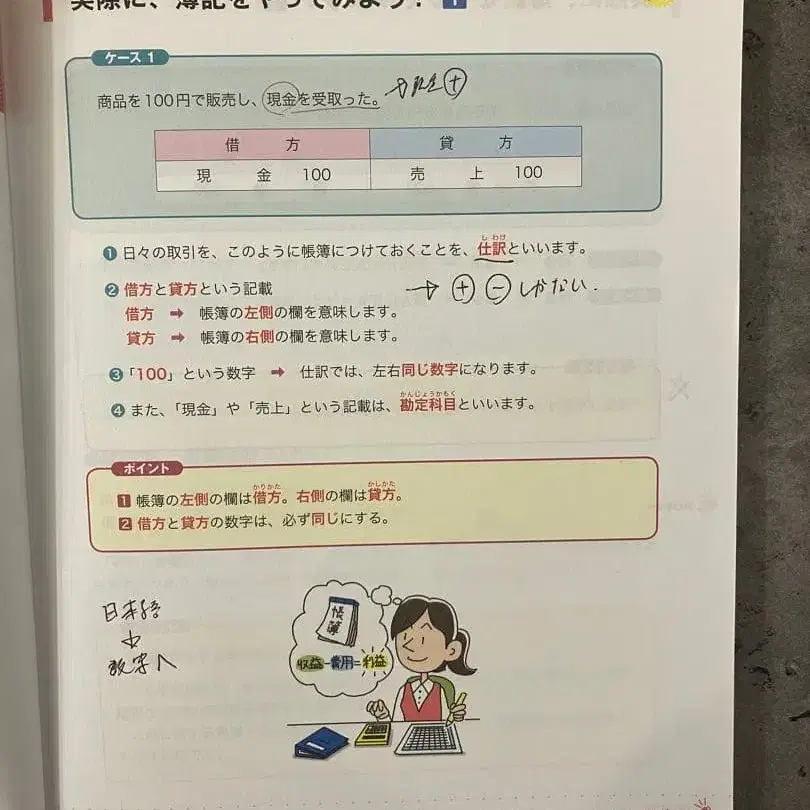 実際に、簿記をやってみよう! 1
ケース 1
商品を100円で販売し、現金を受取った。
→現金⊕
借 方 貸 方
現 金 100 売 上 100
❶ 日々の取引を、このように帳簿につけておくことを、仕訳といいます。
しわけ
❷ 借方と貸方という記載
→ ⊕ ⊖ しかない.
借方 ➡ 帳簿の左側の欄を意味します。
貸方 ➡ 帳簿の右側の欄を意味します。
❸「100」という数字 ➡ 仕訳では、左右同じ数字になります。
かんじょうかもく
❹ また、「現金」や「売上」という記載は、勘定科目といいます。
ポイント
かりかた かしかた
1 帳簿の左側の欄は借方。右側の欄は貸方。
2 借方と貸方の数字は、必ず同じにする。
帳簿
収益-費用=利益
日本語
↓
数字へ